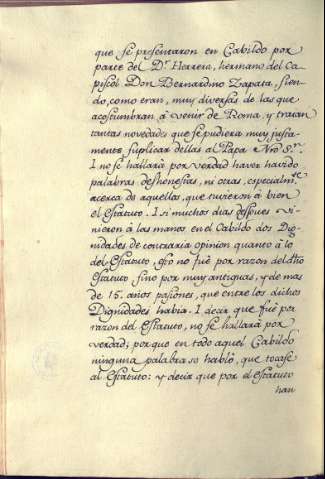 que se presentaron en Cabildo por
parte del D.r Herrera, hermano del Ca-
piscol Don Bernardino Zapata, sien-
do, como eran, muy diversas de las que
acostumbran à venir de Roma, y traian
tantas novedades que se pudiera muy justa-
mente suplicar dellas al Papa Nro S.r
I no se hallarà por verdad haver havido
palabras deshonestas, ni otras, especialm.te
acerca de aquellos, que tuvieron à bien
el Estatuto. I si muchos dias despues vi-
nieron à las manos en el Cabildo dos Dig-
nidades de contraria opinion quanto à lo
del Estatuto, esto no fuè por razon del dho
Estatuto sino por muy antiguas, y de mas
de 15. años pasiones, que entre los dichos
Dignidades habia. I decir que fuè por
razon del Estatuto, no se hallarà por
verdad; porque en todo aquel Cabildo
ninguna palabra se hablò, que tocase
al Estatuto: y decir que por el Estatuto
han